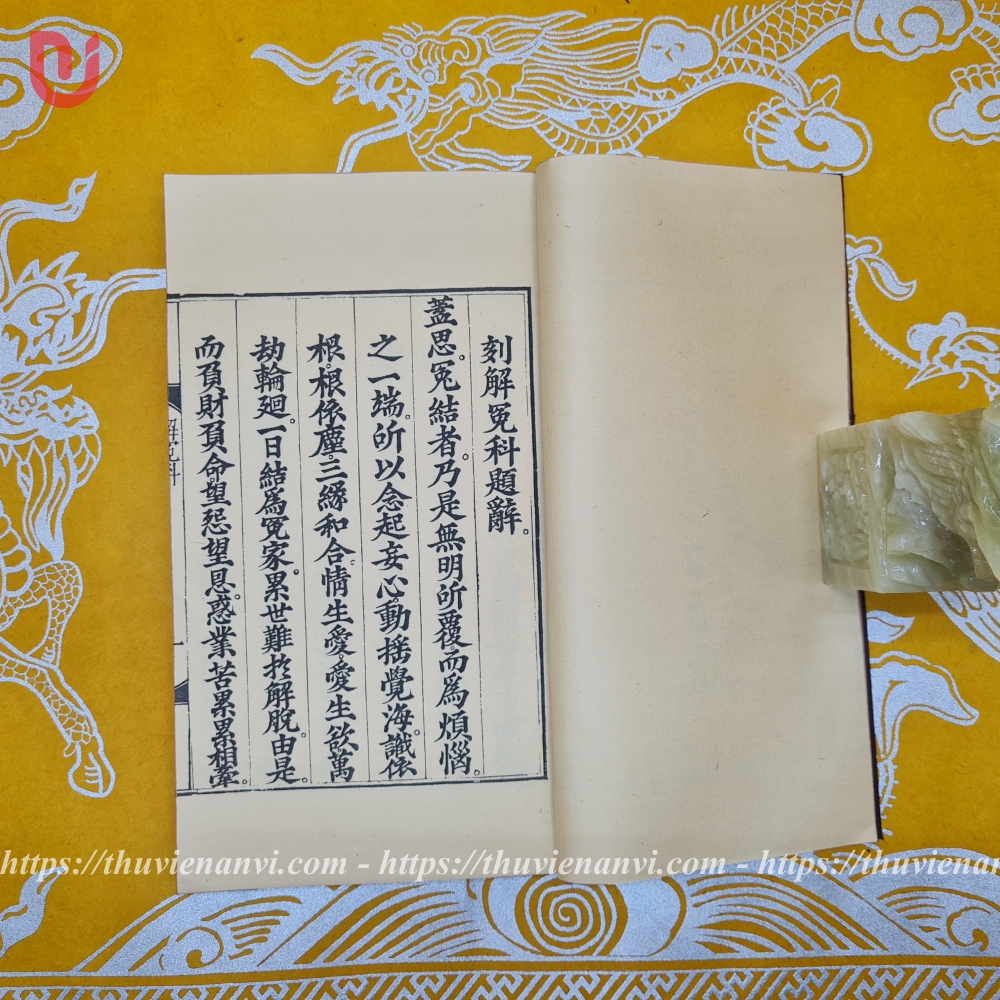 刻解冤科題辭。
蓋思。冤結者。乃是無明所覆。而爲煩惱。
之一端。所以念起妄心。動揺覺海。識依
根。根依塵。三緣和合。情生愛。愛生欲。萬
劫輪廻。一日結爲冤家。累世難扵解脫。由是
而負財負命。望怨望恩。惑業苦累累相牽。
解冤科
https://thuvienanvi.com - https://thuvienanvi.com - https://thuvienanvi.com